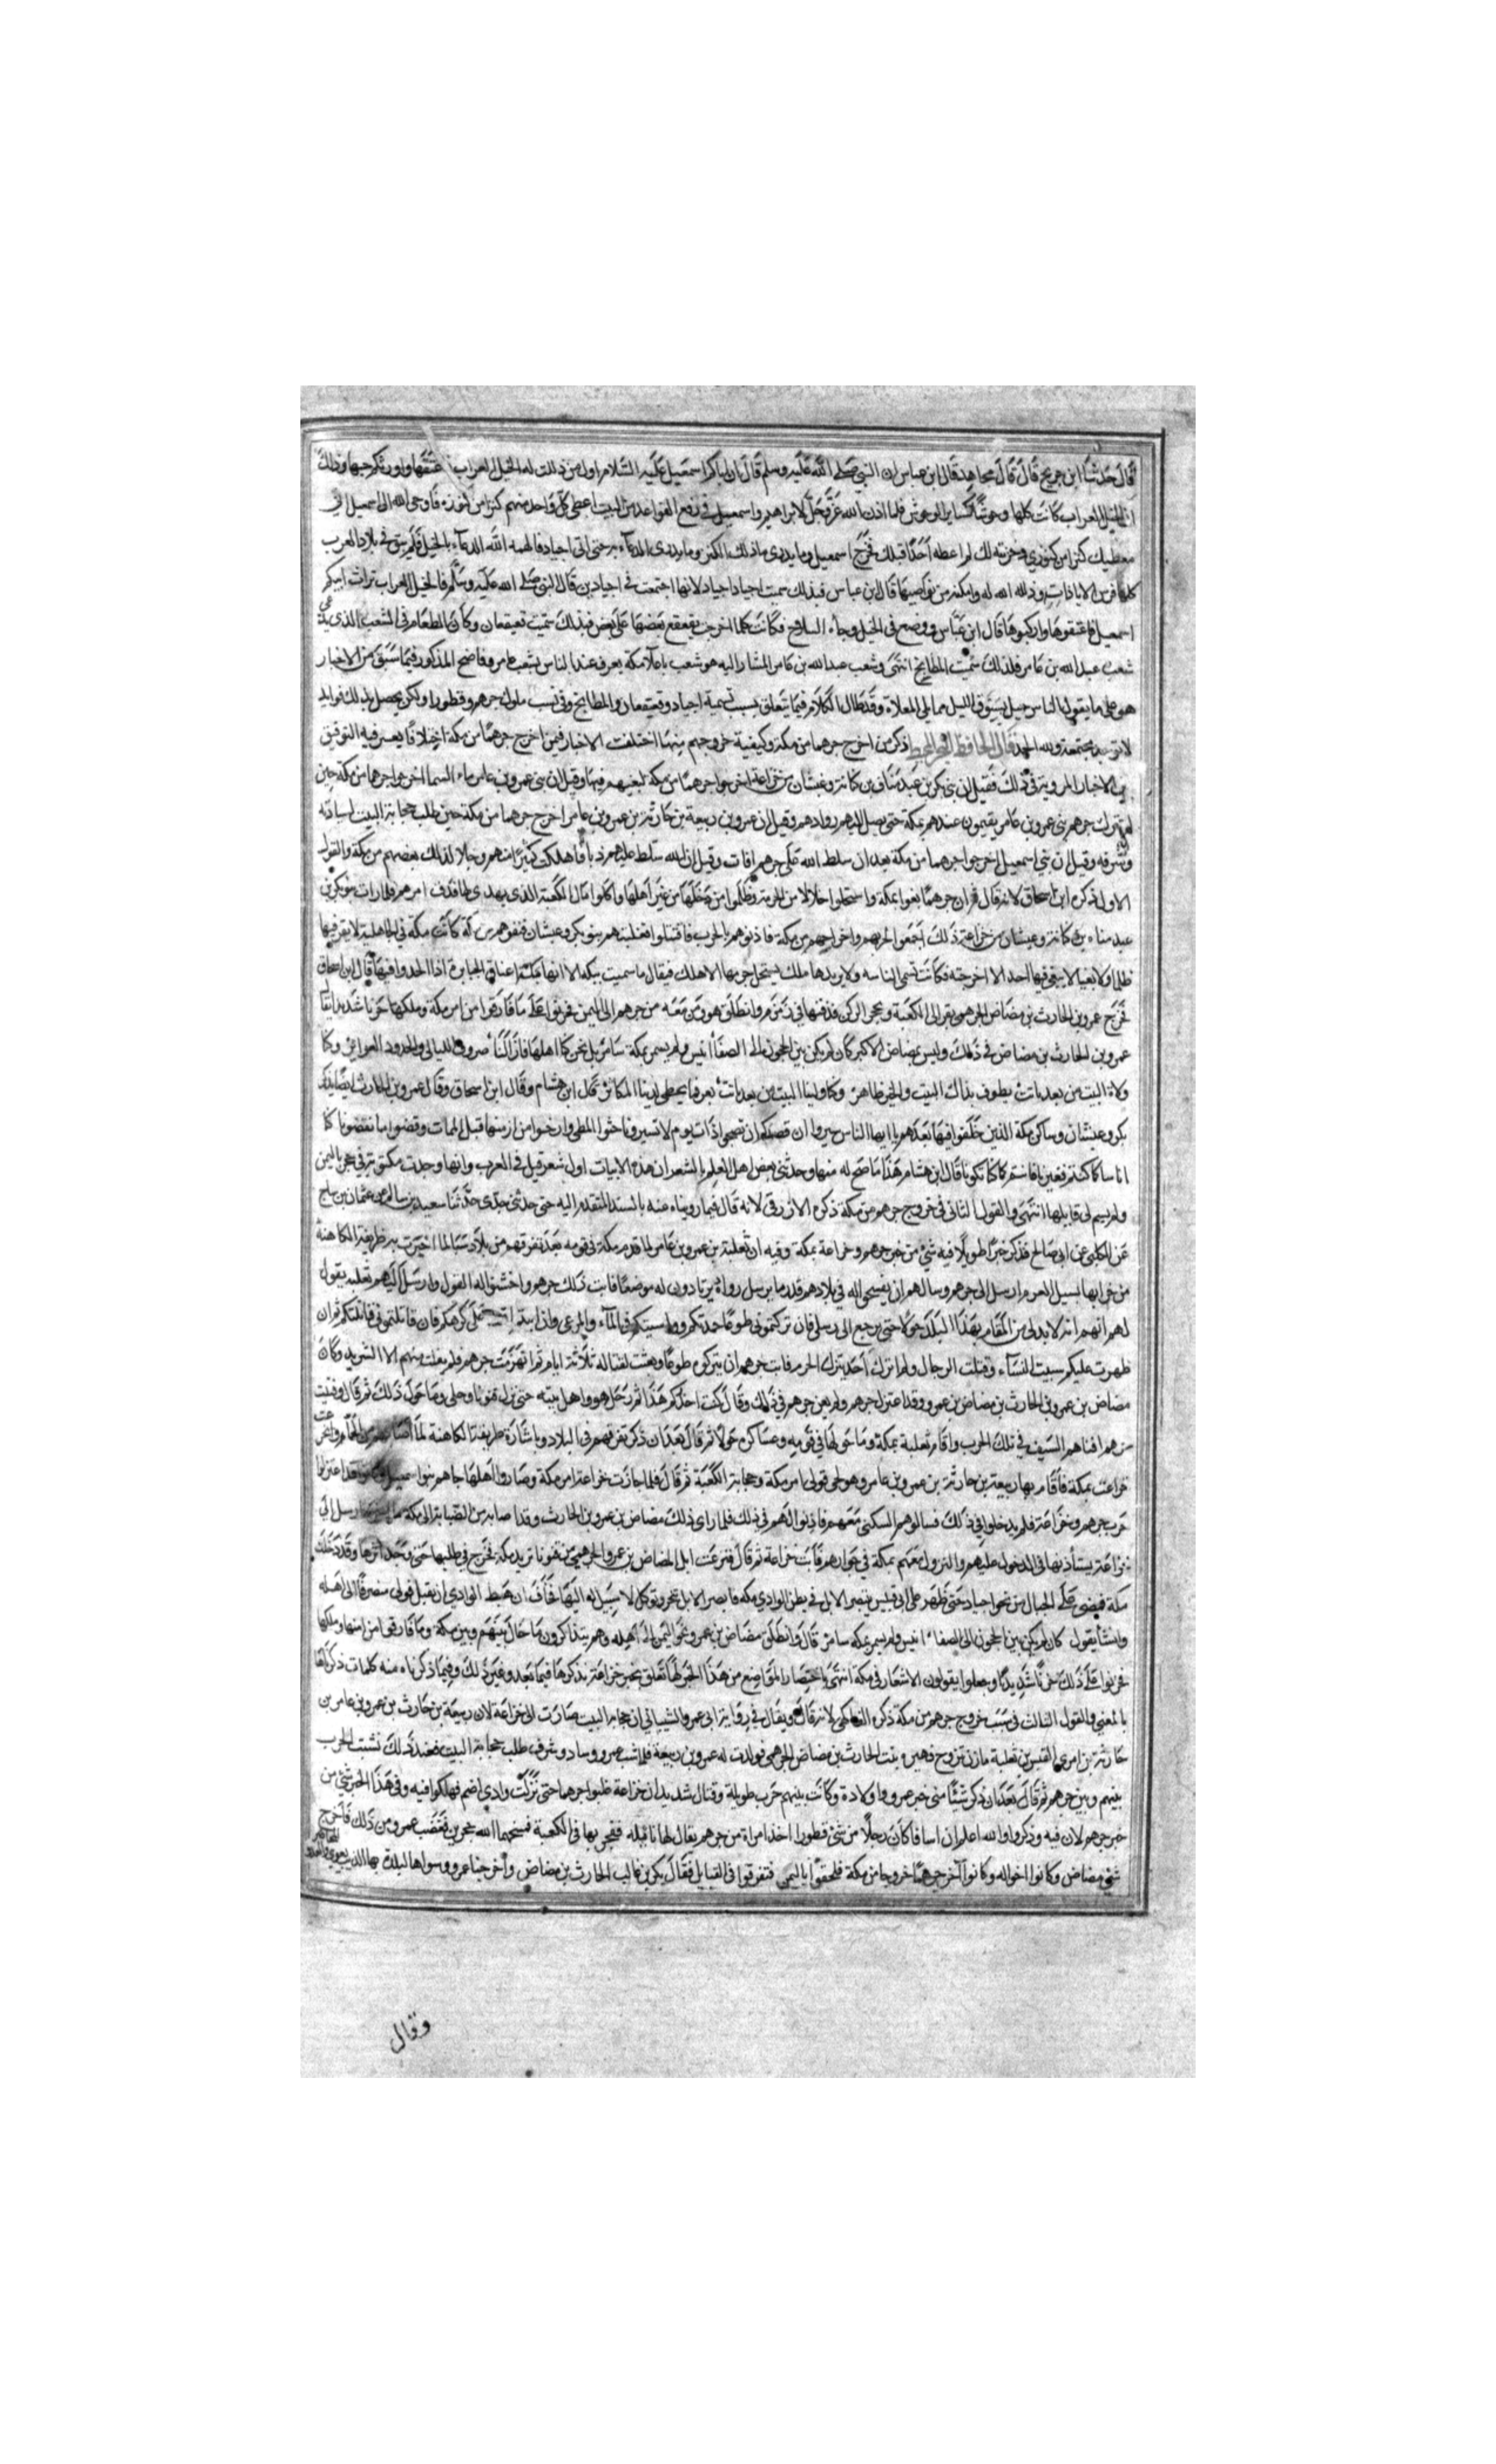 قال حدثنا ابن جريج قال قال مجاهد قال ابن عباس ان النبي صلى الله عليه وسلم قال ان اباكم اسمعيل عليه السلام اول من ذللت له الخيل العراب فاعتنقها واورثكم حبها وذلك
ان الخيل العراب كانت كلها وحوشا كساير الوحوش فلما اذن الله عز وجل لابراهيم واسمعيل في رفع القواعد من البيت اعطى كل واحد منهم كنزا من كنوزه فاوحى الله الى اسمعيل اني
معطيك كنزا من كنوزي لم اعطه احدا قبلك فخرج اسمعيل وما يدرى ماذلك الكنز وما يدرى الدعاء به حتى اتى اجياد فالهمه الله الدعاء بالخيل فلم يبق في بلاد العرب
كلها فرس الا وذلله الله له وامكنه من نواصيها قال ابن عباس فبذلك سميت اجياد اجياد لانها اجتمعت في اجيادين قال النبي صلى الله عليه وسلم فالخيل العراب تراث ابيكم
اسمعيل فاعتنقوها واركبوها قال ابن عباس ووضع في الخيل وجاء السلاح فكانت كلما اخرجت يقعقع بعضها على بعض فبذلك سميت قعيقعان وكان المطعام في الشعب الذي
شعب عبد الله بن عامر فلذلك سميت المطابخ انتهى وشعب عبد الله بن عامر المشار اليه هو شعب باعلا مكة يعرف عند الناس بشعب عامر وفاضح المذكور فيما سبق من الاخبار
هو على ما يقول الناس جبل بسوق الليل مما يلي المعلاة وقد طال الكلام فيما يتعلق بسبب تسمية اجياد وقعيقعان والمطابخ وفي نسب ملوك جرهم وقطورا ولكن يحصل بذلك فوايد
لا توجد مجتمعة ولله الحمد ذكر من اخرج جرهما من مكة وكيفية خروجهم منها اختلفت الاخبار فيمن اخرج جرهما من مكة اختلافا يعسر فيه التوفيق
بين الاخبار المروية في ذلك فقيل ان بني بكر بن عبد مناف بن كنانة وغبشان من خزاعة اخرجوا جرهما من مكة لبغيهم فيها وقيل ان بني عمرو بن عامر ماء السما اخرجوا جرهما من مكة حين
لم يترك جرهم بني عمرو بن عامر يقيمون عندهم بمكة حتى يصل اليهم روادهم وقيل ان عمرو بن ربيعة بن حارثة بن عمرو بن عامر اخرج جرهما من مكة حين طلب حجابة البيت لسيادته
وشرفه وقيل ان بني اسمعيل اخرجوا جرهما من مكة بعد ان سلط الله على جرهم افات وقيل ان الله سلط عليهم فاهلكت كثيرا منهم وجلا لذلك بعضهم من مكة والقول
الاول ذكره ابن اسحاق لانه قال ثم ان جرهما بغوا بمكة واستحلوا حلالا من الحرمة وظلموا من دخلها من غير اهلها واكلوا مال الكعبة الذي يهدى لها فدق امرهم فلما رات بنو بكر بن
عبد مناه بن كنانة وغبشان من خزاعة ذلك اجمعوا لحربهم واخراجهم من مكة فاذنوهم بالحرب فاقتتلوا فغلبتهم بنو بكر وغبشان فنفوهم من مكة كانت مكة في الجاهلية لا يقر فيها
ظلما ولا بغيا لا يبغي فيها احد الا اخرجته فكانت تسمى الناسه ولا يريدها ملك يستحل حرمها الا هلك فيقال ما سميت ببكه الا انها تبك اعناق الجبابرة اذا الحدوا فيها قال ابن اسحاق
فخرج عمرو بن الحارث بن مضاض الجرهمي بغزالي الكعبة وبحجر الركن فدفنها في زمزم وانطلق هو ومن معه من جرهم الى اليمن فحزنوا على ما فارقوا من امر مكة وملكها حزنا شديدا فقال
عمرو بن الحارث بن مضاض في ذلك وليس بمضاض الاكبر كان لم يكن بين الحجون الى الصفا انيس ولم يسمر بمكة سامر بل نحن كنا اهلها فازالنا صروف الليالي والجدود العواثر وكنا
ولاة البيت من بعد نابت نطوف بذاك البيت والخير ظاهر وكنا ولينا البيت من بعد نابت بعز فما يحظى لدينا المكاثر قال ابن هشام وقال ابن اسحاق وقال عمرو بن الحارث ايضا يذكر
بكر وغبشان وساكن مكة الذين خلفوا فيها بعدهم يا ايها الناس سيروا ان قصركم ان تصبحوا ذات يوم لا تسيرونا حثوا المطي وارخوا من ازمتها قبل الممات وقضوا ما تقضونا كنا
اناسا كما كنتم فغيرنا فانتم كما كنا تكونا قال ابن هشام هذا ما صح له منها وحدثني بعض اهل العلم بالشعر ان هذه الابيات اول شعر قيل في العرب وانها وجدت مكتوبة في حجر باليمن
ولم يسم لي قايلها انتهى والقول الثاني في خروج جرهم من مكة ذكره الازرقي لانه قال فيما رويناه عنه بالسند المتقدم اليه حتى حدثني جدى حدثنا سعيد بن سالم عن عثمان بن ساج
عن الكلبي عن ابي صالح فذكر خبرا طويلا فيه شئ من خبر جرهم وخزاعة بمكة وفيه ان ثعلبة بن عمرو بن عامر لما قدم مكة في قومه بعد تفرقهم من بلاد سبا لما اخبرت به طريفة الكاهنة
من خرابها بسيل العرم ارسل الى جرهم وسالهم ان يفسحوا له في بلادهم قدر ما يرسل رواده يرتادون له موضعا فابت ذلك جرهم واخشنوا له القول وارسل اليهم ثعلبة يقول
لهم انهم انه لا بد لي من المقام بهذا البلد حولا حتى يرجع الى رسلي فان تركتموني طوعا حمدتكم وواسيتكم في الماء والمرعى وان ابيتم اقمت على كرهكم فان قاتلتموني قاتلتكم ثم ان
ظهرت عليكم سبيت النساء وقتلت الرجال ولم اترك احدا ينزل الحرم فابت جرهم ان يتركوه طوعا وبعثت لقتاله ثلاثة ايام ثم انهزمت جرهم فلم يفلت منهم الا الشريد وكان
مضاض بن عمرو بن الحارث بن مضاض بن عمرو وقد اعتزل جرهم ولم يعن جرهم في ذلك وقال كنت احذركم هذا ثم رحل هو واهل بيته حتى نزل قنونا وحلى وما حول ذلك ثم قال وفنيت
جرهم افناهم السيف في تلك الحرب واقام ثعلبة بمكة وما حولها في قومه وعساكره حولا ثم قال بعد ان ذكر تفرقهم في البلاد وباشارة طريفة الكاهنة لما
خزاعة بمكة فاقام بها ربيعة بن حارثة بن عمرو بن عامر وهو لحي فولى امر مكة وحجابة الكعبة ثم قال فلما حازت خزاعة امر مكة وصاروا اهلها جاهم بنو اسمعيل وقد اعتزلوا
حرب جرهم وخزاعة فلم يدخلوا في ذلك فسالوهم السكنى معهم فاذنوا لهم في ذلك فلما راى ذلك مضاض بن عمرو بن الحارث وقد اصابه من الصبابة الى مكة ارسل الى
خزاعة يستأذنها في الدخول عليهم والنزول معهم بمكة في جوارهم فابت خزاعة ثم قال فنزعت ابل لمضاض بن عمرو الجرهمي من قنونا تريد مكة فخرج في طلبها حتى وجد اثرها وقد دخلت
مكة فمضى على الجبال من نحو اجياد حتى ظهر على ابي قبيس يتبصر الابل في بطن الوادي مكة فابصر الابل تنحر وتوكل لا سبيل له اليها فخاف ان هبط الوادي ان يقتل فولى منصرفا الى اهله
وانشا يقول كان لم يكن بين الحجون الى الصفا انيس ولم يسمر بمكة سامر قال وانطلق مضاض بن عمرو نحو اليمن الى اهله وهم يتذاكرون ما حال بينهم وبين مكة وما فارقوا من امنها وملكها
فحزنوا على ذلك حزنا شديدا وجعلوا يقولون الاشعار في مكة انتهى واختصار المواضع من هذا الخبر لها تعلق بخبر خزاعة نذكرها فيما بعد وغير ذلك وفيما ذكرناه منه كلمات ذكرناها
بالمعنى والقول الثالث في سبب خروج جرهم من مكة ذكره الفاكهي لانه قال ويقال في رواية ابي عمرو الشيباني ان حجابة البيت صارت الى خزاعة لان ربيعة بن حارث بن عمرو بن عامر بن
حارثة بن امرئ القيس بن ثعلبة مازن تزوج فهيرة بنت الحارث بن مضاض الجرهمي فولدت له عمرو بن ربيعة فلما شب عمرو وساد وشرف طلب حجابة البيت فعند ذلك نشبت الحرب
بينهم وبين جرهم ثم قال بعد ان ذكر شيئا من خبر عمرو اولاده وكانت بينهم حرب طويلة وقتال شديد ان خزاعة غلبوا جرهما حتى نزلت وادي اضم فهلكوا فيه وفي هذا الخبر شئ من
خبر جرهم لان فيه وذكروا والله اعلم ان اسافا كان رجلا من بني قطورا اخذ امراة من جرهم يقال لها نائلة ففجر بها في الكعبة فمسخهما الله حجرين فغضب عمرو من ذلك فاخرج
بني مضاض وكانوا اخواله وكانوا آخر جرهما خروجا من مكة فلحقوا باليمن فتفرقوا في القبايل فقال بكر بن غالب الحارث بن مضاض واخرجنا عمرو وسواها لبلدة بها
وقال